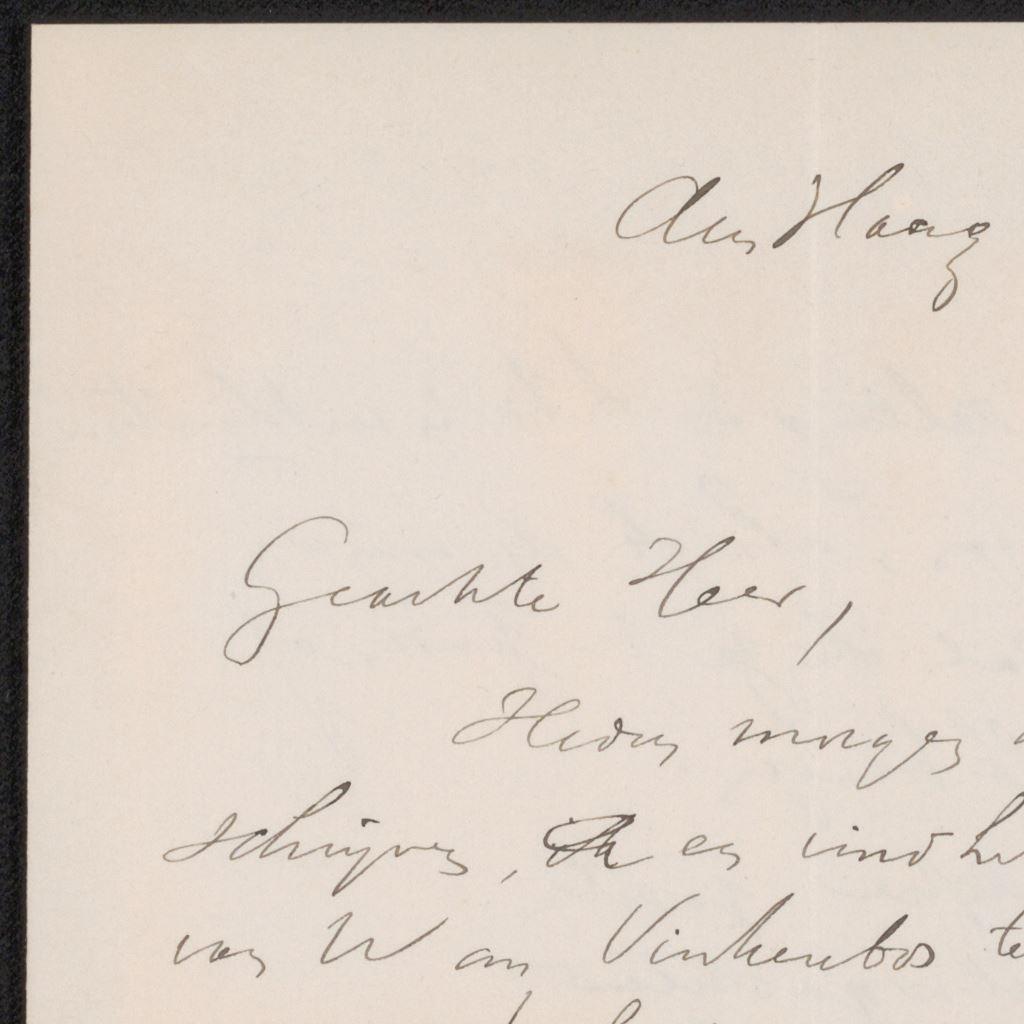 den Haag
Geachte Heer,
Heden morgen
schrijven, en vind
van W en Vinkenbos te